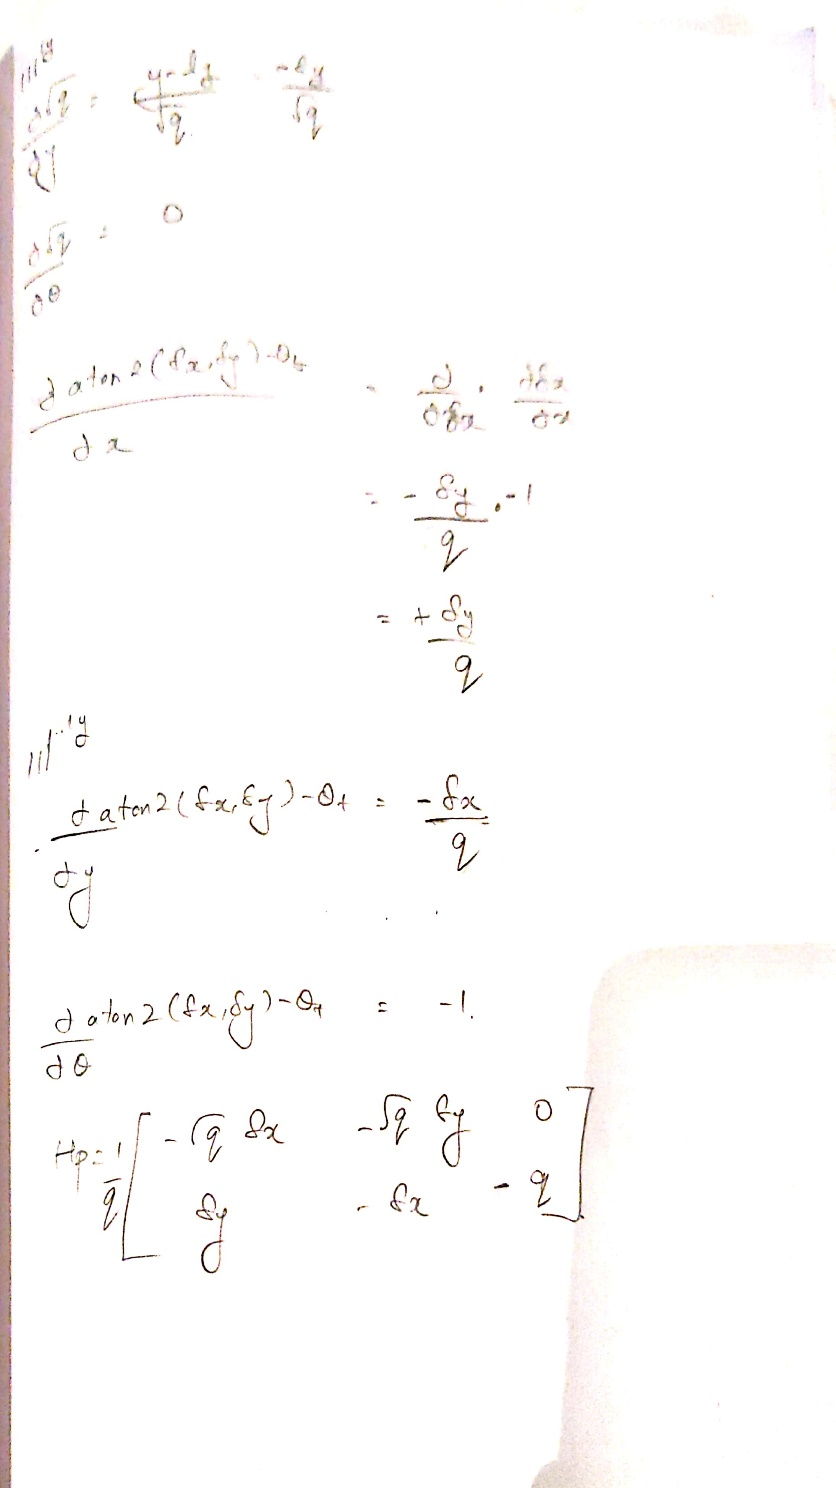 |||ly
∂√q/∂y = y-ly/√q -δy/√q
∂√q/∂θ = 0
∂ atan2(δx,δy)-θt/∂x = ∂/∂δx . ∂δx/∂x
= -δy/q . -1
= +δy/q
|||ly
∂ atan2(δx,δy)-θt/∂y = -δx/q
∂ atan2(δx,δy)-θt/∂θ = -1.
Hp = 1/q [ -√q δx -√q δy 0
δy -δx -q ]